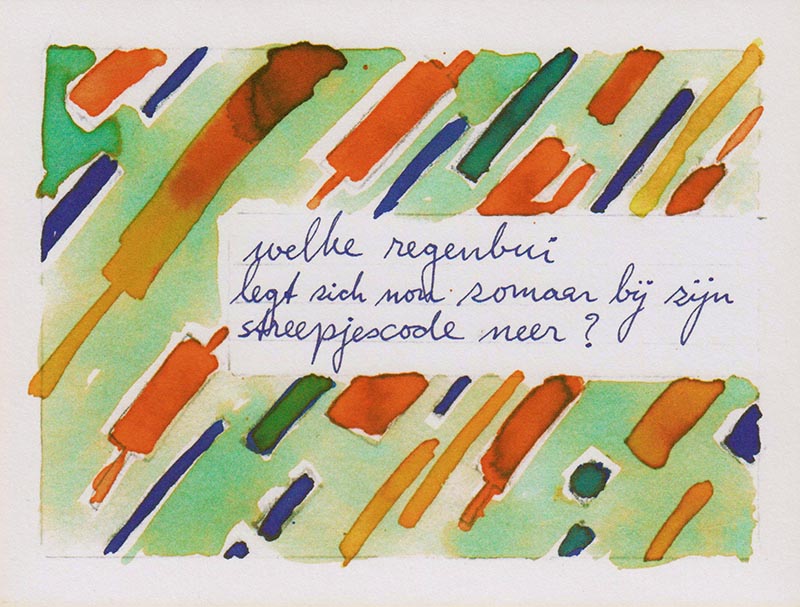 welke regenbui
legt zich nou zomaar bij zijn
streepjescode neer?